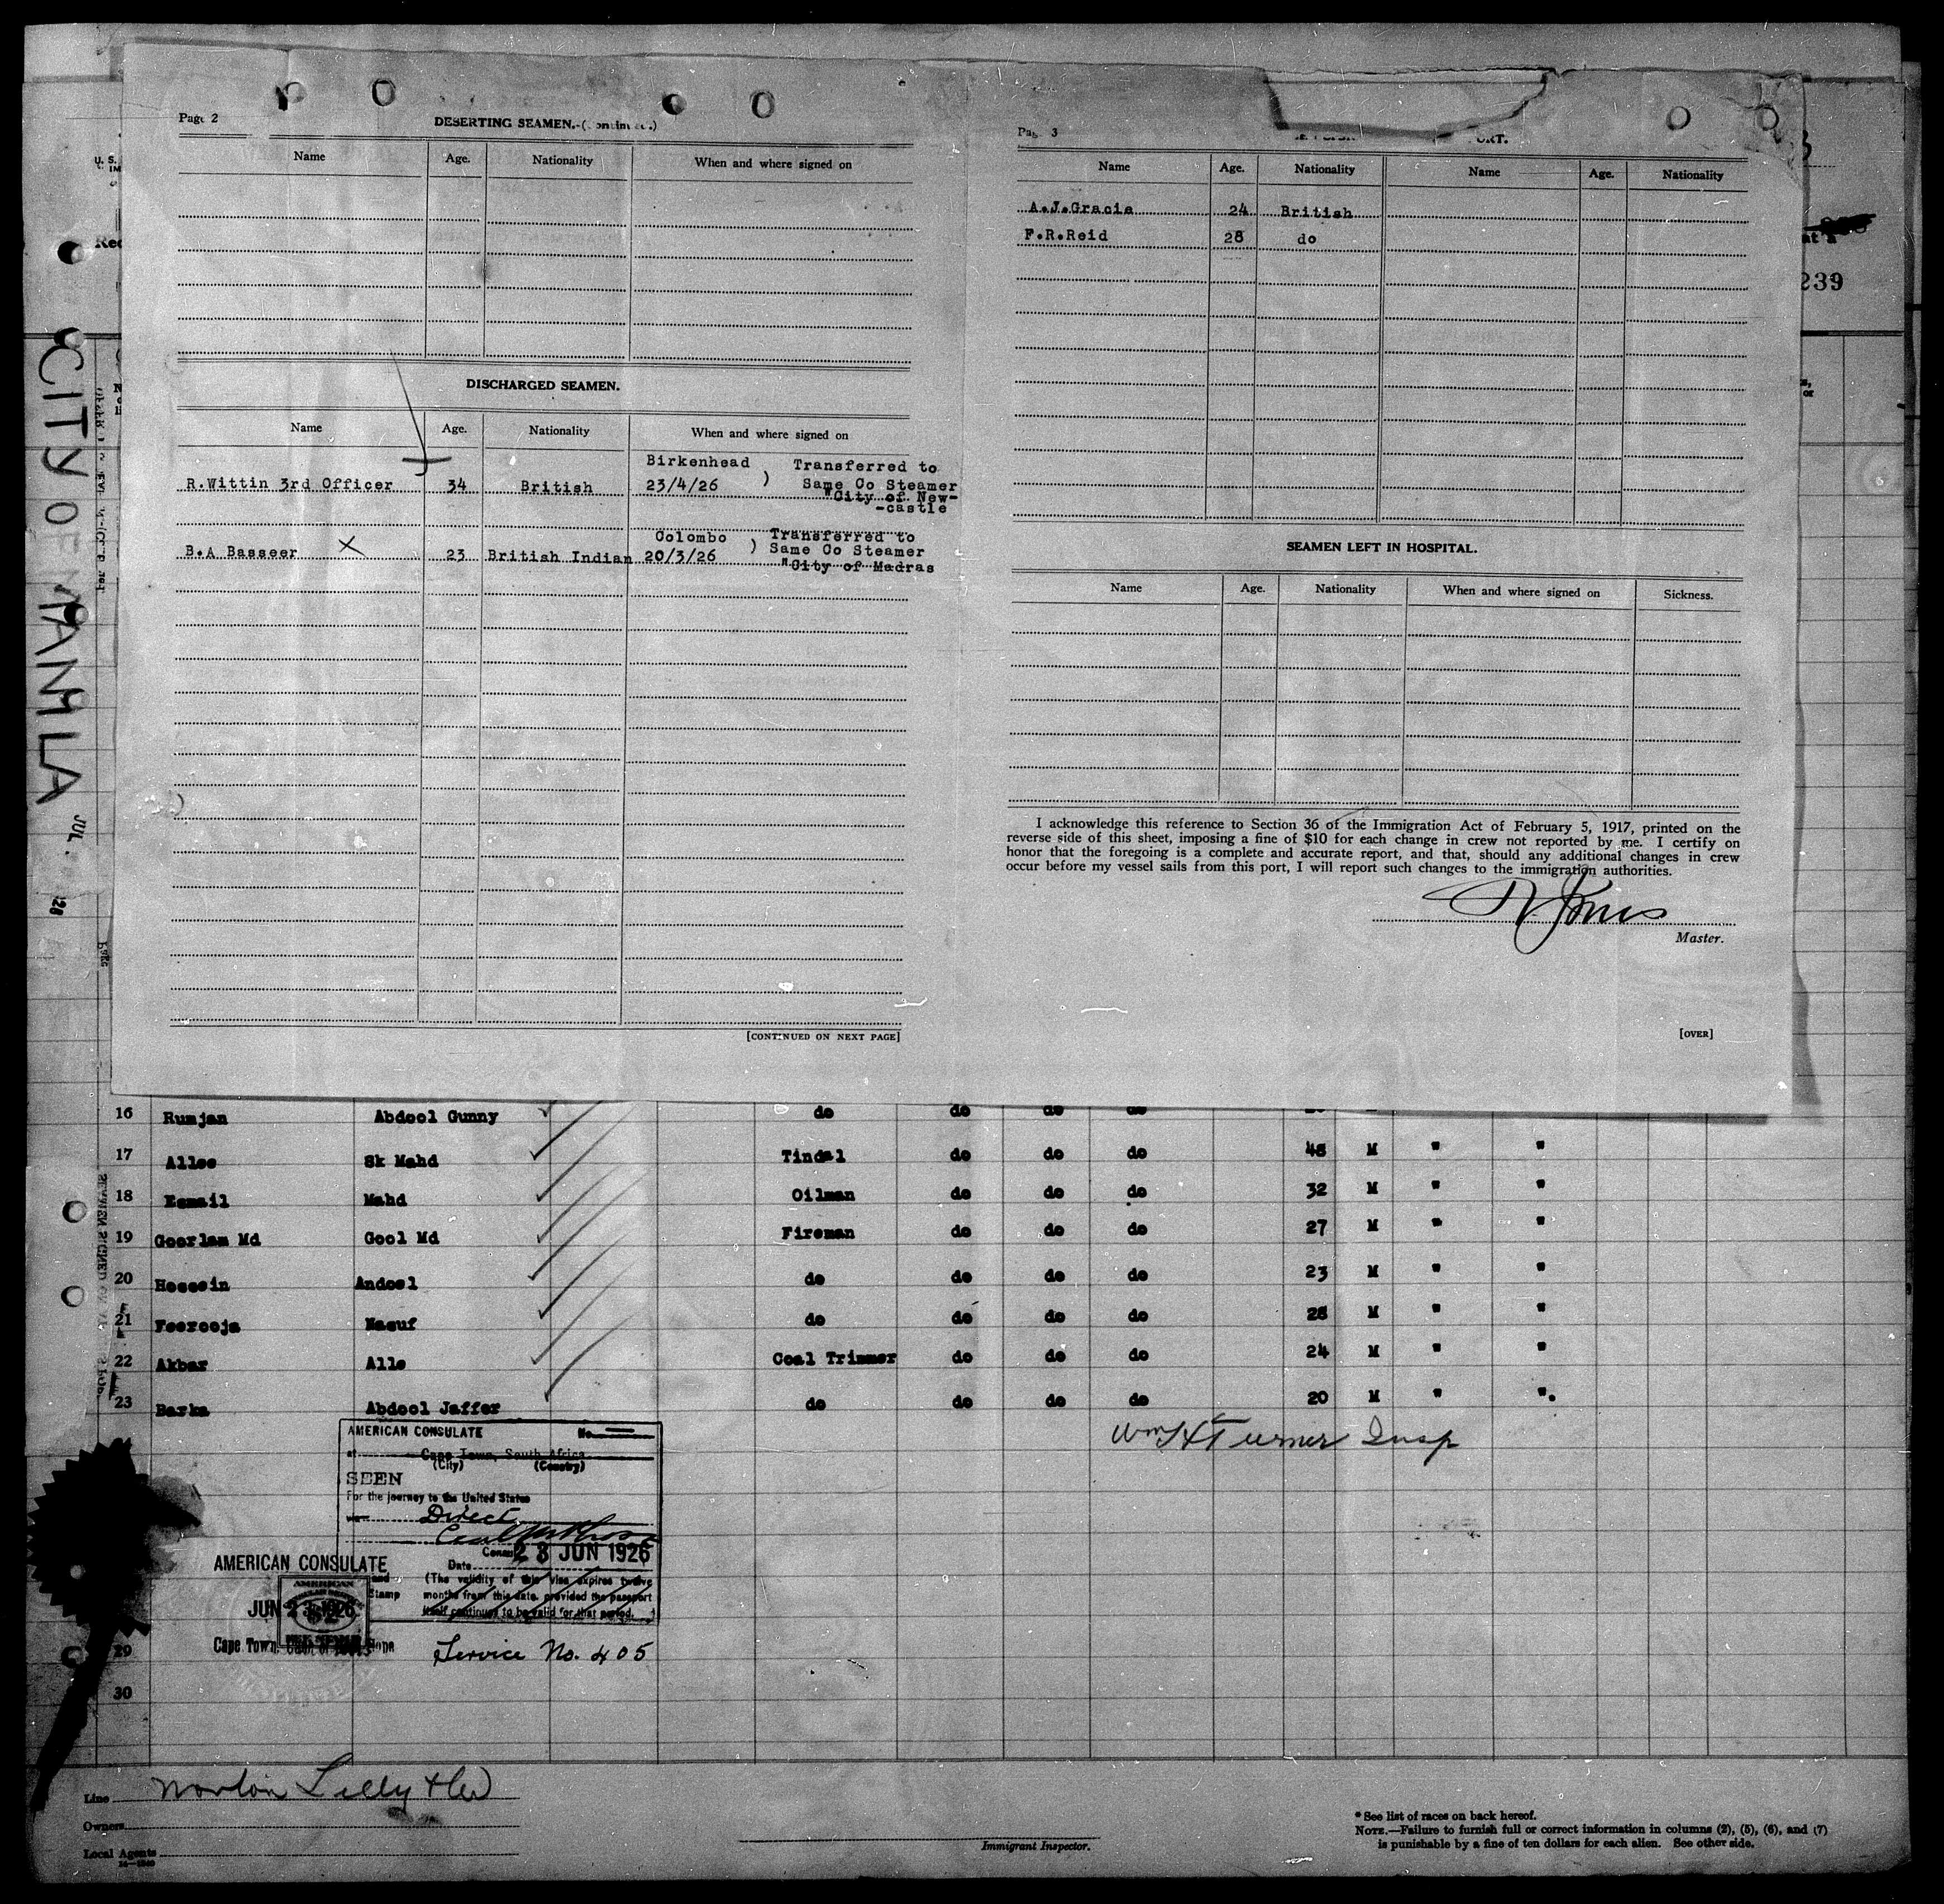 Page 2
DESERTING SEAMEN.-
Name Age. Nationality When and where signed on
DISCHARGED SEAMEN.
Name Age. Nationality When and where signed on
R.Wittin 3rd Officer 34 British Birkenhead 23/4/26 ) Transferred to
Same Co Steamer
"City of New-
-castle
B.A Basseer X 23 British Indian Colombo 20/3/26 ) Transferred to
Same Co Steamer
"City of Madras
[CONTINUED ON NEXT PAGE]
Page 3
Name Age. Nationality Name Age. Nationality
A.J.Gracie 24 British
F.R.Reid 28 do
SEAMEN LEFT IN HOSPITAL.
Name Age. Nationality When and where signed on Sickness.
I acknowledge this reference to Section 36 of the Immigration Act of February 5, 1917, printed on the
reverse side of this sheet, imposing a fine of $10 for each change in crew not reported by me. I certify on
honor that the foregoing is a complete and accurate report, and that, should any additional changes in crew
occur before my vessel sails from this port, I will report such changes to the immigration authorities.
Master.
[OVER]
U. S.
239
CITY OF MANILA
JUL.
16 Rumjan Abdool Gunny do do do do
17 Allee Sk Mahd Tindal do do do 48 M " "
18 Esmail Mahd Oilman do do do 32 M " "
19 Goorlam Md Gool Md Fireman do do do 27 M " "
20 Hossein Andool do do do do 23 M " "
21 Feerooja Nasuf do do do do 28 M " "
22 Akbar Alle Coal Trimmer do do do 24 M " "
23 Barka Abdool Jaffer do do do do 20 M " ".
Wm H Turner Insp
AMERICAN CONSULATE No.
at Cape Town, South Africa
(City) (Country)
SEEN
For the journey to the United States
Direct
Date 23 JUN 1926
(The validity of this visa expires twelve
months from this date, provided the passport
itself continues to be valid for that period.)
AMERICAN CONSULATE
JUN 23 1926
Cape Town
Service No. 405
29
30
Line Norton Lilly & Co
Owners
Local Agents
Immigrant Inspector.
* See list of races on back hereof.
NOTE.—Failure to furnish full or correct information in columns (2), (5), (6), and (7)
is punishable by a fine of ten dollars for each alien. See other side.